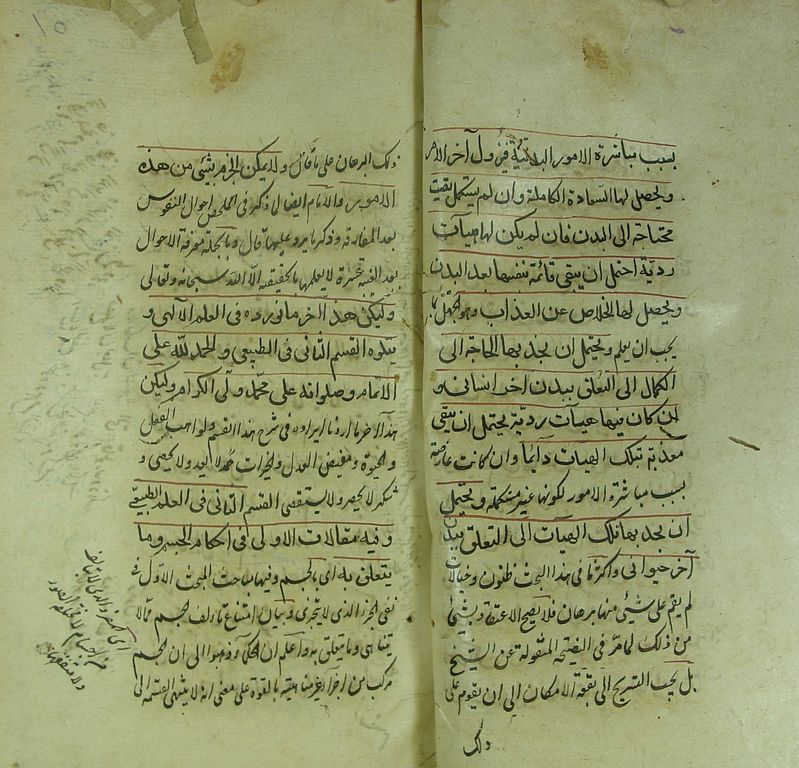 بسبب مباشرة الامور البدنية فيزول آخر الامر
ويحصل لها السعادة الكاملة وان لم يستكمل بقيت
محتاجة الى البدن فان لم يكن لها هيآت
رديّة احتمل ان يبقى قائمة بنفسها بعد البدن
ويحصل لها الخلاص عن العذاب وهو الجهل بما
يجب ان يعلم ويحتمل ان يجذبها الحاجة الى
الكمال الى التعلق ببدن آخر انسانى و
ان كان فيها هيئات رديّة يحتمل ان يبقى
معذبة بتلك الهيات دآئما وان كانت عارضة
بسبب مباشرة الامور لكونها غير متمكنة ويحتمل
ان يجذبها تلك الهيآت الى التعلق ببدن
آخر حيوانى واكثر ما فى هذا البحث ظنون وخيالات
لم يقم على شيئى منها برهان فلا يصح الاعتقاد بشئ
من ذلك لما مرّ فى النصيحة المنقولة عن الشيخ
بل يجب التسريح الى بقعة الامكان الى ان يقوم على
ذلك
ذلك البرهان على ما قال ولا يمكن الجزم بشيئى من هذه
الامور والامام ايضا لما ذكر فى الملخص احوال النفوس
بعد المفارقة وذكر ما يرد عليها قال وبالجملة معرفة الاحوال
بعد الغيبة عسرة لا يعلمها بالحقيقة الّا اللّه سبحانه وتعالى
وليكن هذا آخر ما نورده فى العلم الآلهى و
يتلوه القسم الثانى فى الطبيعى والحمد للّه على
الاتمام وصلواته على محمّد وآلى الكرام وليكن
هذا آخر ما اردنا ايراده فى شرح هذا القسم ولواهب العقل
والحيوة ومفيض العدل والخيرات حمد لا يعد ولا يحصى و
شكر لا يحصر ولا يستقصى القسم الثانى فى العلم الطبيعى
وفيه مقالات الاولى فى احكام الجسم وما
يتعلق به اى بالجسم وفيها مباحث المبحث الاول فى
نفى الجزء الذى لا يتجزى وبيان امتناع تألف الجسم ممّا لا
يتناهى وما يتعلق به واعلم ان الحكماء ذهبوا الى ان الجسم
مركب من اجزاء غير متناهية بالقوة على معنى انه لا ينتهى القسمة الى